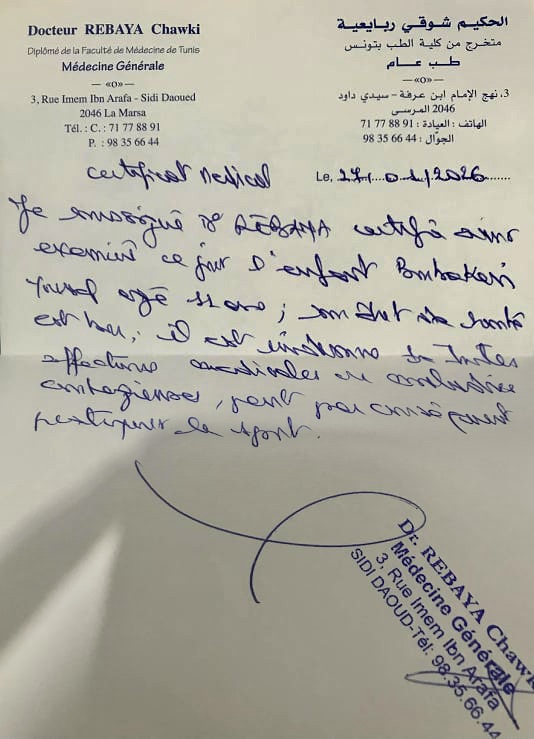 Docteur REBAYA Chawki
Diplômé de la Faculté de Médecine de Tunis
Médecine Générale
—«o»—
3, Rue Imem Ibn Arafa - Sidi Daoued
2046 La Marsa
Tél. : C. : 71 77 88 91
P. : 98 35 66 44
الحكيم شوقي ربايعية
متخرج من كلية الطب بتونس
طب عام
—«o»—
3، نهج الإمام ابن عرفة - سيدي داود
2046 المرسى
الهاتف : العيادة : 91 88 77 71
الجوّال : 44 66 35 98
certificat medical
Le, 27/01/2026
Je soussigné Dr REBAYA certifie avoir
examiné ce jour l'enfant
Yousef agé 11 ans ; son état de santé
est bon, il est indemne de toutes
affections cardiales ou maladies
contagieuses, peut par conséquent
pratiquer le sport.
Dr. REBAYA Chawki
Médecine Générale
3, Rue Imem Ibn Arafa
SIDI DAOUD-Tél: 98.35.66.44